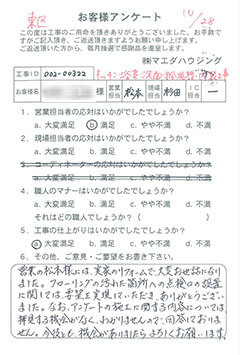 東区
10/28
お客様アンケート
この度は工事のご用命を頂きありがとうございました。お手数で
すがご記入頂き、ご返送頂きますようお願い申し上げます。
ご返送頂いた方から、毎月抽選で感謝品を進呈します。
㈱マエダハウジング
工事ID 002-00322
お客様名 営業担当 松本 現場担当 杉田 IC担当
1. 営業担当者の応対はいかがでしたでしょうか?
a. 大変満足 b. 満足 c. やや不満 d. 不満
2. 現場担当者の応対はいかがでしたでしょうか?
a. 大変満足 b. 満足 c. やや不満 d. 不満
3. コーディネーターの応対はいかがでしたでしょうか?
a. 大変満足 b. 満足 c. やや不満 d. 不満
4. 職人のマナーはいかがでしたでしょうか?
a. 大変満足 b. 満足 c. やや不満 d. 不満
それはどの職人でしょうか?( )
5. 工事の仕上がりはいかがでしたでしょうか?
a. 大変満足 b. 満足 c. やや不満 d. 不満
6. その他、ご意見・ご要望をお書き下さい。
営業の松本様には、実家のリフォームで大変お世話になり
ました。フローリングの汚れた箇所への点検口の設置
に関しては、要望を実現していただき、ありがとうござい
ました。なお、アンケートの施工に関する内容については
拝見する機会がなく、わかりませんので、回答しておりま
せん。今後とも、機会がありましたらよろしくお願いします。